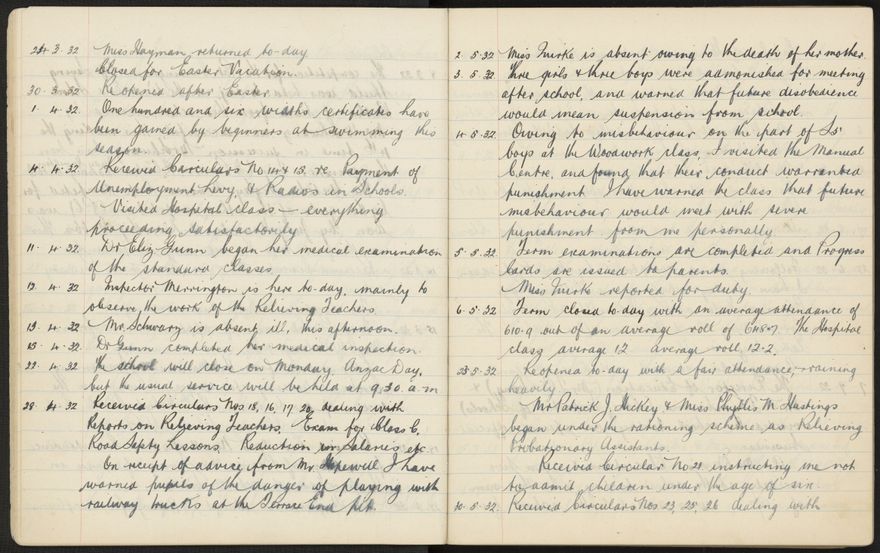 24.3.32 Miss Hayman returned to-day
Closed for Easter Vacation.
30.3.32 Reopened after Easter.
1.4.32. One hundred and six widths certificates have
been gained by beginners at swimming this
season.
4.4.32 Received Circulars No 14 & 15. re Payment of
Unemployment Levy, & Radios in Schools.
Visited Hospital class — everything
proceeding satisfactorily
11.4.32. Dr Eliz. Gunn began her medical examination
of the standard classes
12.4.32 Inspector Merrington is here to-day, mainly to
observe the work of the Relieving Teachers.
13.4.32 Mr. Schwarz is absent, ill, this afternoon.
15.4.32. Dr Gunn completed her medical inspection.
22.4.32 The school will close on Monday, Anzac Day,
but the usual service will be held at 9.30. a.m
28.4.32 Received Circulars Nos 18, 16, 17, 20, dealing with
Reports on Relieving Teachers, Exam for Class C,
Road Safety Lessons, Reduction in Salaries etc.
On receipt of advice, from Mr Hopewill I have
warned pupils of the danger of playing with
railway trucks at the Terrace End pit.
2.5.32 Miss Quirke is absent owing to the death of her mother.
3.5.32 Three girls & three boys were admonished for meeting
after school, and warned that future disobedience
would mean suspension from school.
4.5.32. Owing to misbehaviour on the part of S5
boys at the Woodwork class, I visited the Manual
Centre, and found that their conduct warranted
punishment. I have warned the class that future
misbehaviour would meet with severe
punishment from me personally
5.5.32 Term examinations are completed and Progress
Cards are issued to parents.
Miss Quirke reported for duty.
6.5.32 Term closed to-day with an average attendance of
610.9 out of an average roll of 648.7. The Hospital
class average 12 average roll 12.2.
23.5.32 Reopened to-day with a fair attendance, — raining
heavily.
Mr Patrick J. Hickey & Miss Phyllis M. Hastings
began under the rationing scheme as Relieving
Probationary Assistants.
Received Circular No 21 instructing me not
to admit children under the age of six.
30.5.32. Received Circulars Nos 23, 25, 26 dealing with